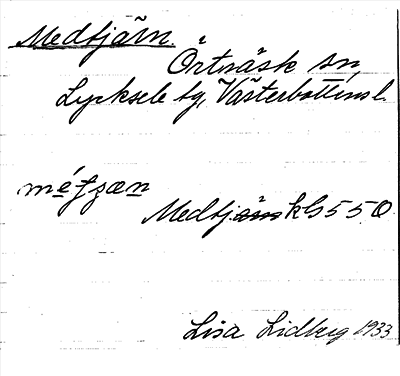 Medtjärn
Örträsk sn
Lycksele tg, Västerbottens l.
méʈʂæn
Medtjärn kG 550
Lisa Lidberg 1933